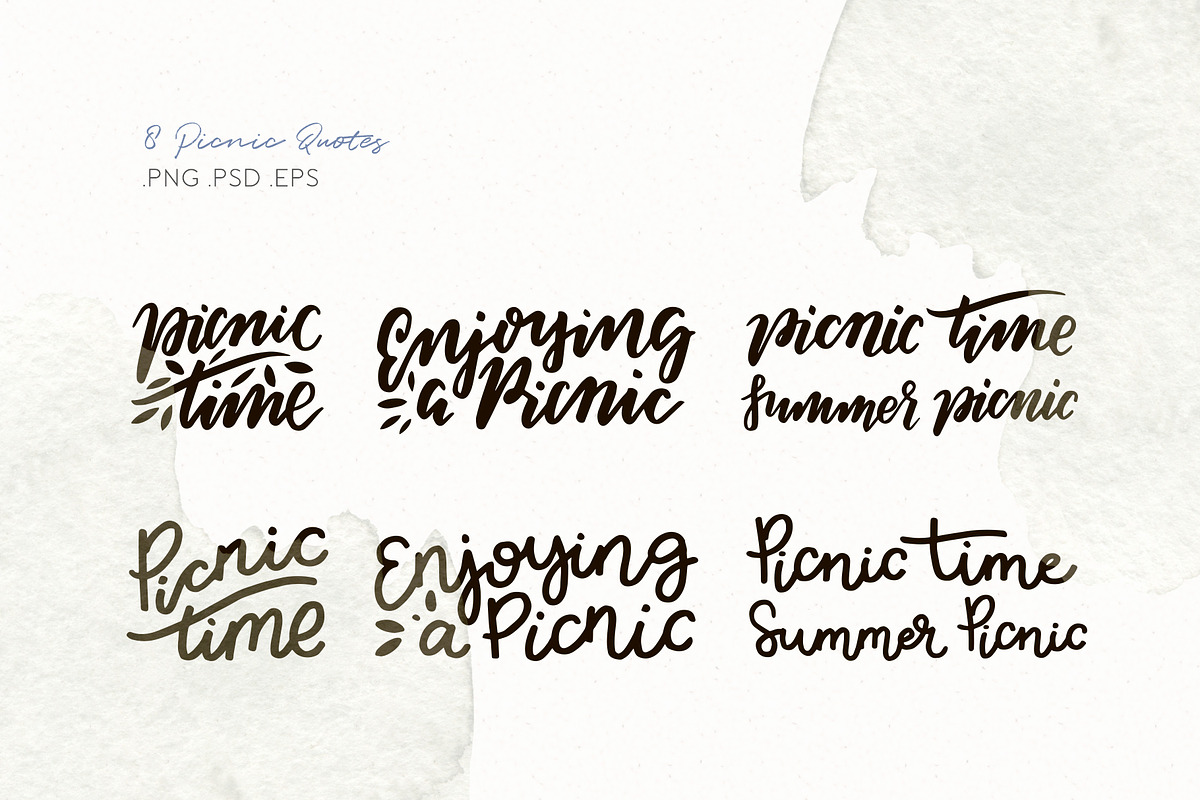 8 Picnic Quotes
.PNG .PSD .EPS
picnic
time
Enjoying
a Picnic
picnic time
Summer picnic
Picnic
time
Enjoying
a Picnic
Picnic time
Summer Picnic